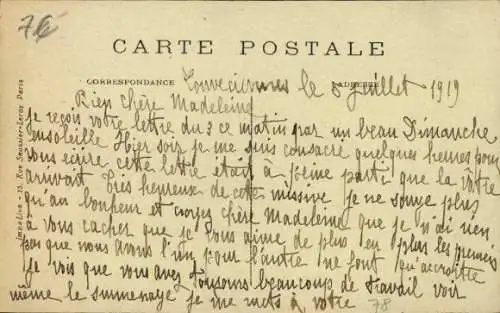 76
CARTE POSTALE
CORRESPONDANCE
Louveciennes le 5 Juillet 1919
Bien chère Madeleine
Je reçois votre lettre du 3 ce matin par un beau Dimanche
ensoleillé Hier soir je me suis consacré quelques heures pour
vous écrire cette lettre était à peine partie que la vôtre
arrivait Très heureux de cette missive je ne songe plus
qu'au bonheur et croyez chère Madeleine que je n'ai rien
à vous cacher que je vous aime de plus en plus les premiers
pas que nous avons l'un pour l'autre ne font qu'accroître
Je vois que vous avez toujours beaucoup de travail voir
même le surmenage je me mets à votre
78
Imp. 13, Rue Paris